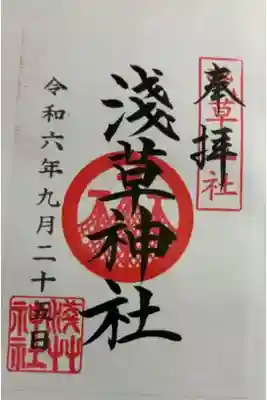 奉拝
淺草神社
令和六年九月二十五日
淺草神社